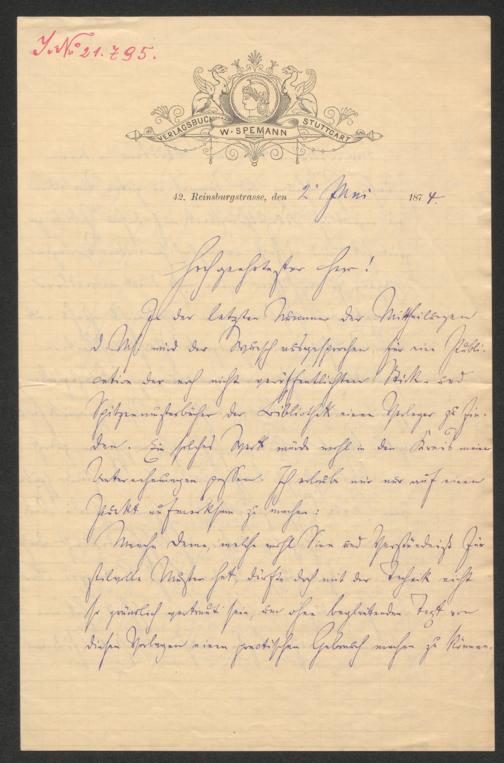 J. No 21.795.
VERLAGSBUCH
W. SPEMANN
STUTTGART
42. Reinsburgstrasse, den 2t Juni 1874.
Hochgeehrtester Herr!
In der letzten Nummer der Mittheilungen
d. Ms. wird der Wunsch ausgesprochen, für eine Publi-
cation der noch nicht veröffentlichten Stick- und
Spitzenmusterbücher der Bibliothek einen Verleger zu fin-
den. Ein solches Werk würde wohl in den Kreis meiner
Unternehmungen passen. Ich erlaube mir nur auf einen
Punkt aufmerksam zu machen:
Manche Dame, welche wohl Sinn und Verständniß für
stilvolle Muster hat, dürfte doch mit der Technik nicht
so gründlich vertraut sein, um ohne begleitenden Text von
diesen Vorlagen einen practischen Gebrauch machen zu können.